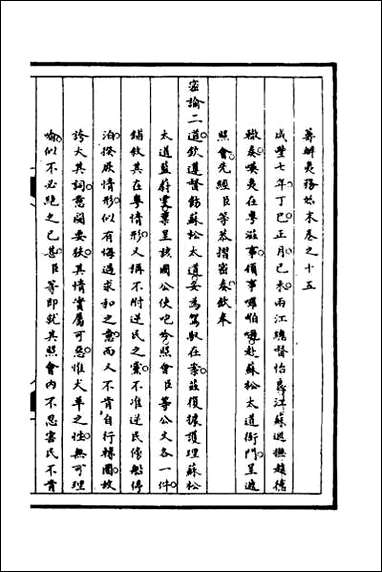 籌辦夷務始末卷之十五
咸豐七年丁巳正月己未兩江總督怡良江蘇巡撫趙德
轍奏嘆夷在粵滋事領事囉怕嗼赴蘇松太道衙門呈遞
照會先經臣等恭摺密奏欽奉
密諭二道欽遵督飭蘇松太道妥為駕馭在案茲復據護理蘇松
太道藍蔚雯稟呈該國公使咆呤照會臣等公文各一件
鋪敘其在粵情形又稱不附逆民之黨不准逆民停船停
泊揆厥情形似有悔過求和之意而又不肯自行轉圜故
誇大其詞意圖要挾其情實屬可惡惟犬羊之性無可理
喻似不必絕之已甚臣等即就其照會內不忍害民不肯